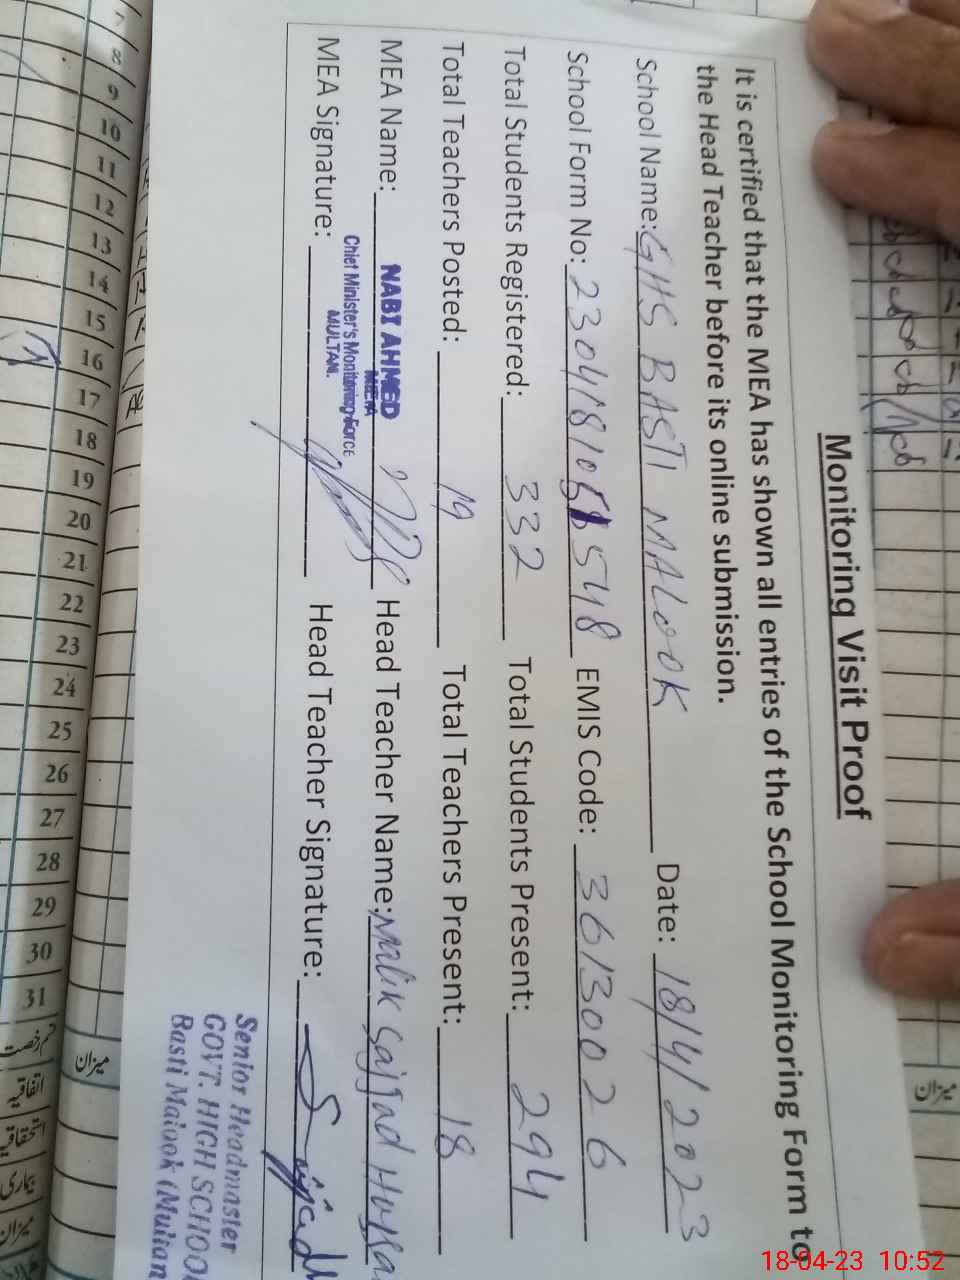 Monitoring Visit Proof
It is certified that the MEA has shown all entries of the School Monitoring Form to
the Head Teacher before its online submission.
School Name: GHS BASTI MALOOK Date: 18/4/2023
School Form No: 548 EMIS Code: 36130026
Total Students Registered: 332 Total Students Present: 294
Total Teachers Posted: 19 Total Teachers Present: 18
MEA Name: NABI AHMED Head Teacher Name: Malik Sajjad
MEA
Chief Minister's Monitoring Force
MULTAN.
MEA Signature: Head Teacher Signature: Sajjad
Senior Headmaster
GOVT. HIGH SCHOOL
Basti Malook (Multan
7
8
9
10
11
12
13
14
15
16
17
18
19
20
21
22
23
24
25
26
27
28
29
30
31
میزان
قسم رخصت
اتفاقیہ
استحقاقیہ
بیماری
میزان
میزان
18-04-23 10:52